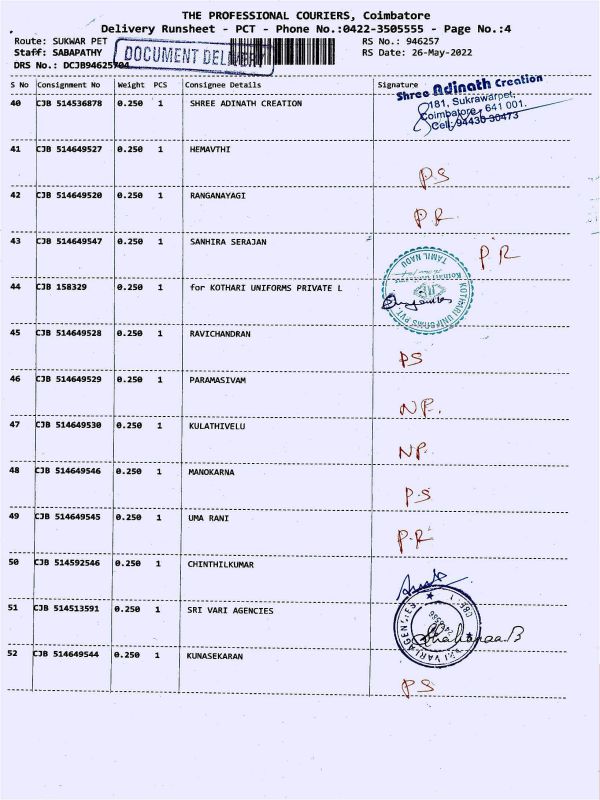 THE PROFESSIONAL COURIERS, Coimbatore
Delivery Runsheet - PCT - Phone No.:0422-3505555 - Page No.:4
Route: SUKWAR PET RS No.: 946257
Staff: SABAPATHY DOCUMENT RS Date: 26-May-2022
DRS No.: DCJB94625
S No Consignment No Weight PCS Consignee Details Signature
Shree Adinath Creation
181, Sukrawarpet,
Coimbatore - 641 001.
Cell: 94430 30473
40 CJB 514536878 0.250 1 SHREE ADINATH CREATION
41 CJB 514649527 0.250 1 HEMAVTHI
PS
42 CJB 514649520 0.250 1 RANGANAYAGI
P.R
43 CJB 514649547 0.250 1 SANHIRA SERAJAN
P R
44 CJB 158329 0.250 1 for KOTHARI UNIFORMS PRIVATE L
KOTHARI UNIFORMS PVT.
TAMIL NADU
45 CJB 514649528 0.250 1 RAVICHANDRAN
PS
46 CJB 514649529 0.250 1 PARAMASIVAM
NP.
47 CJB 514649530 0.250 1 KULATHIVELU
NP.
48 CJB 514649546 0.250 1 MANOKARNA
P.S
49 CJB 514649545 0.250 1 UMA RANI
P.R
50 CJB 514592546 0.250 1 CHINTHILKUMAR
51 CJB 514513591 0.250 1 SRI VARI AGENCIES
SRI VARI AGENCIES
52 CJB 514649544 0.250 1 KUNASEKARAN
PS